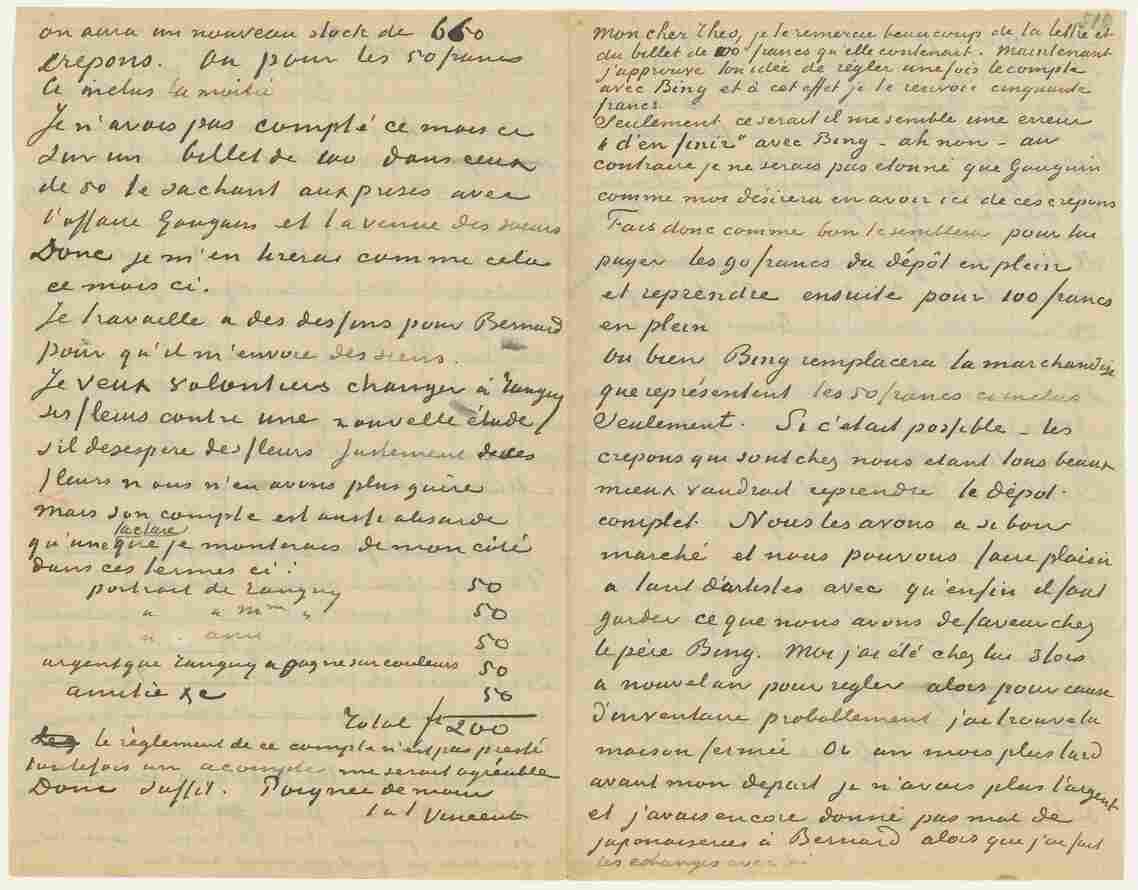 on aura un nouveau stock de 660
crepons. Ou pour les 50 francs
ci inclus la moitié
Je n'avais pas compté ce mois ci
sur un billet de 100 dans ceux
de 50 te sachant aux prises avec
l'affaire Gauguin et la venue des soeurs
Donc je m'en tirerai comme cela
ce mois ci.
Je travaille a des dessins pour Bernard
pour qu'il m'envoie des siens.
Je veux volontiers changer à Tanguy
ses fleurs contre une nouvelle étude
s'il desespere des fleurs justement des
fleurs nous n'en avons plus guère
mais son compte est aussi absurde
la clare
qu'une que je monterais de mon côté
dans ces termes ci:
portrait de Tanguy 50
" " Mme " 50
" " ami 50
argent que Tanguy a gagné sur couleurs 50
amitié &c 50
Total fr 200
le règlement de ce compte n'est pas pressé
toutefois un acompte me serait agréable
Donc suffit. Poignée de main
t. à t. Vincent
510
mon cher Theo, je te remercie beaucoup de ta lettre et
du billet de 100 francs qu'elle contenait. Maintenant
j'approuve ton idée de règler une fois le compte
avec Bing et à cet effet je te renvoie cinquante
francs.
Seulement ce serait il me semble une erreur
"d'en finir" avec Bing – ah non – au
contraire je ne serais pas etonné que Gauguin
comme moi désirera en avoir ici de ces crepons
Fais donc comme bon te semblera pour lui
payer les 90 francs du dépôt en plein
et reprendre ensuite pour 100 francs
en plein
ou bien Bing remplacera la marchandise
que représentent les 50 francs ci inclus
Seulement. Si c'était possible – les
crepons qui sont chez nous etant tous beaux
mieux vaudrait reprendre le dépôt
complet. Nous les avons a si bon
marché et nous pouvons faire plaisir
a tant d'artistes avec qu'enfin il faut
garder ce que nous avons de faveur chez
le père Bing. Moi j'ai été chez lui 3 fois
a nouvel an pour regler alors pour cause
d'inventaire probablement j'ai trouvé la
maison fermée Or un mois plus tard
avant mon depart je n'avais plus l'argent
et j'avais encore donné pas mal de
japonaiseries à Bernard alors que j'ai fait
les echanges avec lui